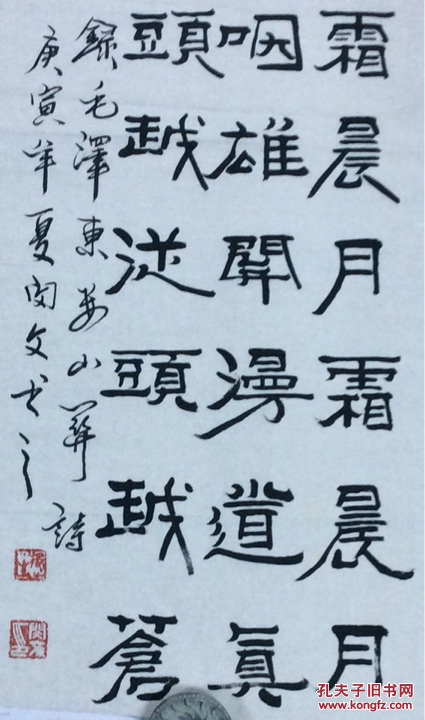 霜晨月霜晨月
咽雄開漫道真
頭越從頭越蒼
錄毛澤東婁山關詩
庚寅年夏閔文书之
孔夫子旧书网
www.kongfz.com